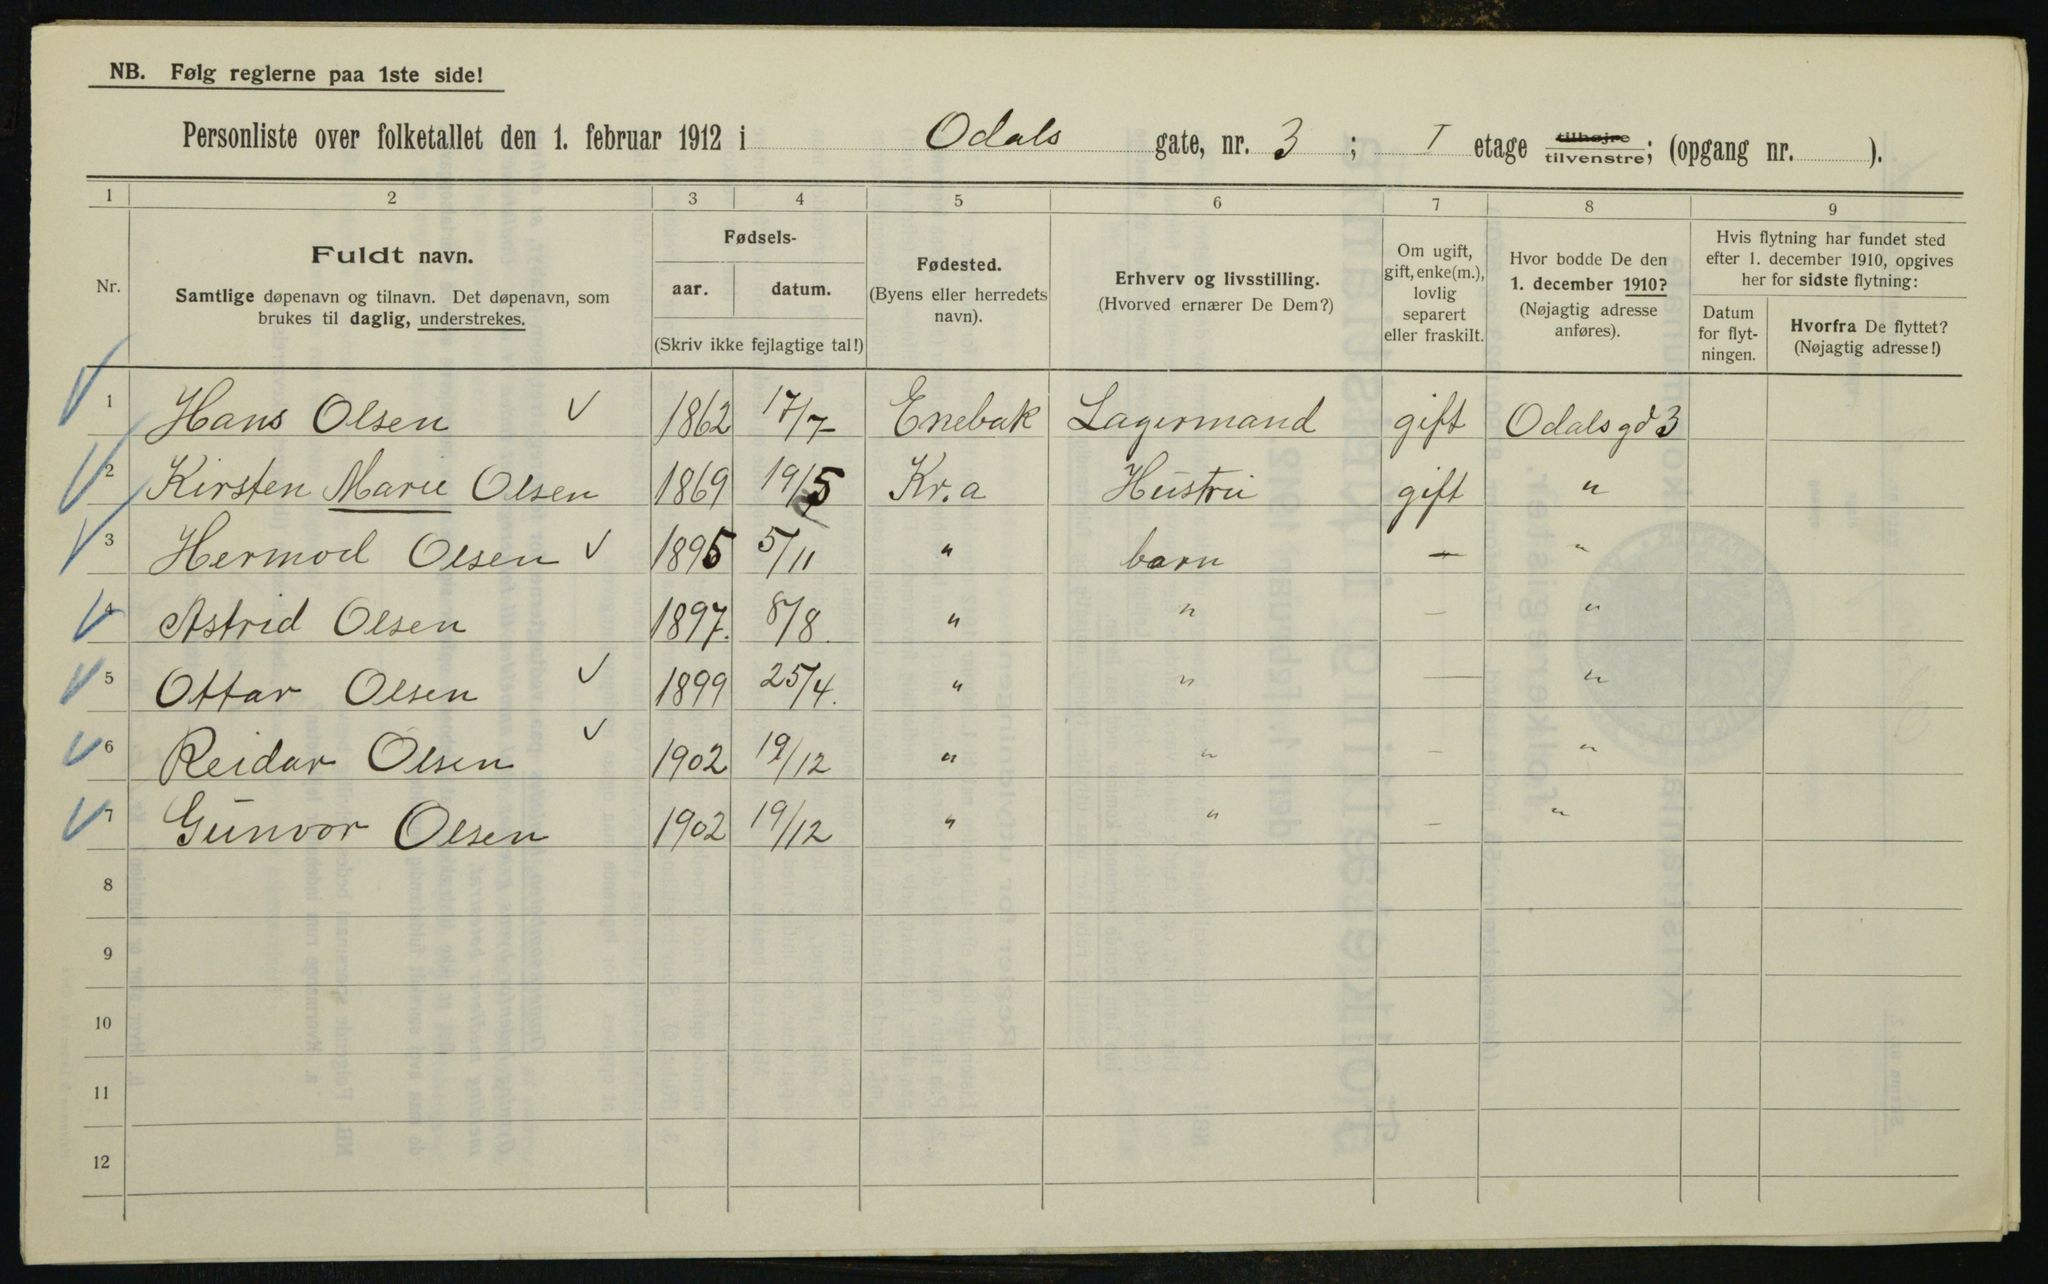 NB. Følg reglerne paa 1ste side!
Personliste over folketallet den 1. februar 1912 i Odals gate, nr. 3 ; I etage tilhøjre tilvenstre; (opgang nr. ).
1 2 3 4 5 6 7 8 9
Nr.
Fuldt navn.
Samtlige døpenavn og tilnavn. Det døpenavn, som
brukes til daglig, understrekes.
Fødsels-
aar. datum.
(Skriv ikke fejlagtige tal!)
Fødested.
(Byens eller herredets
navn).
Erhverv og livsstilling.
(Hvorved ernærer De Dem?)
Om ugift,
gift, enke(m.),
lovlig
separert
eller fraskilt.
Hvor bodde De den
1. december 1910?
(Nøjagtig adresse
anføres).
Hvis flytning har fundet sted
efter 1. december 1910, opgives
her for sidste flytning:
Datum
for flyt-
ningen.
Hvorfra De flyttet?
(Nøjagtig adresse!)
1 Hans Olsen 1862 17/7 Enebak Lagermand gift Odalsgd 3
2 Kirsten Marie Olsen 1869 19/5 Kr.a Hustru gift "
3 Hermod Olsen 1895 5/11 " barn — "
4 Astrid Olsen 1897. 8/8. " " — "
5 Ottar Olsen 1899 25/4. " " — "
6 Reidar Olsen 1902 19/12 " " — "
7 Gunvor Olsen 1902 19/12 " " — "
8
9
10
11
12